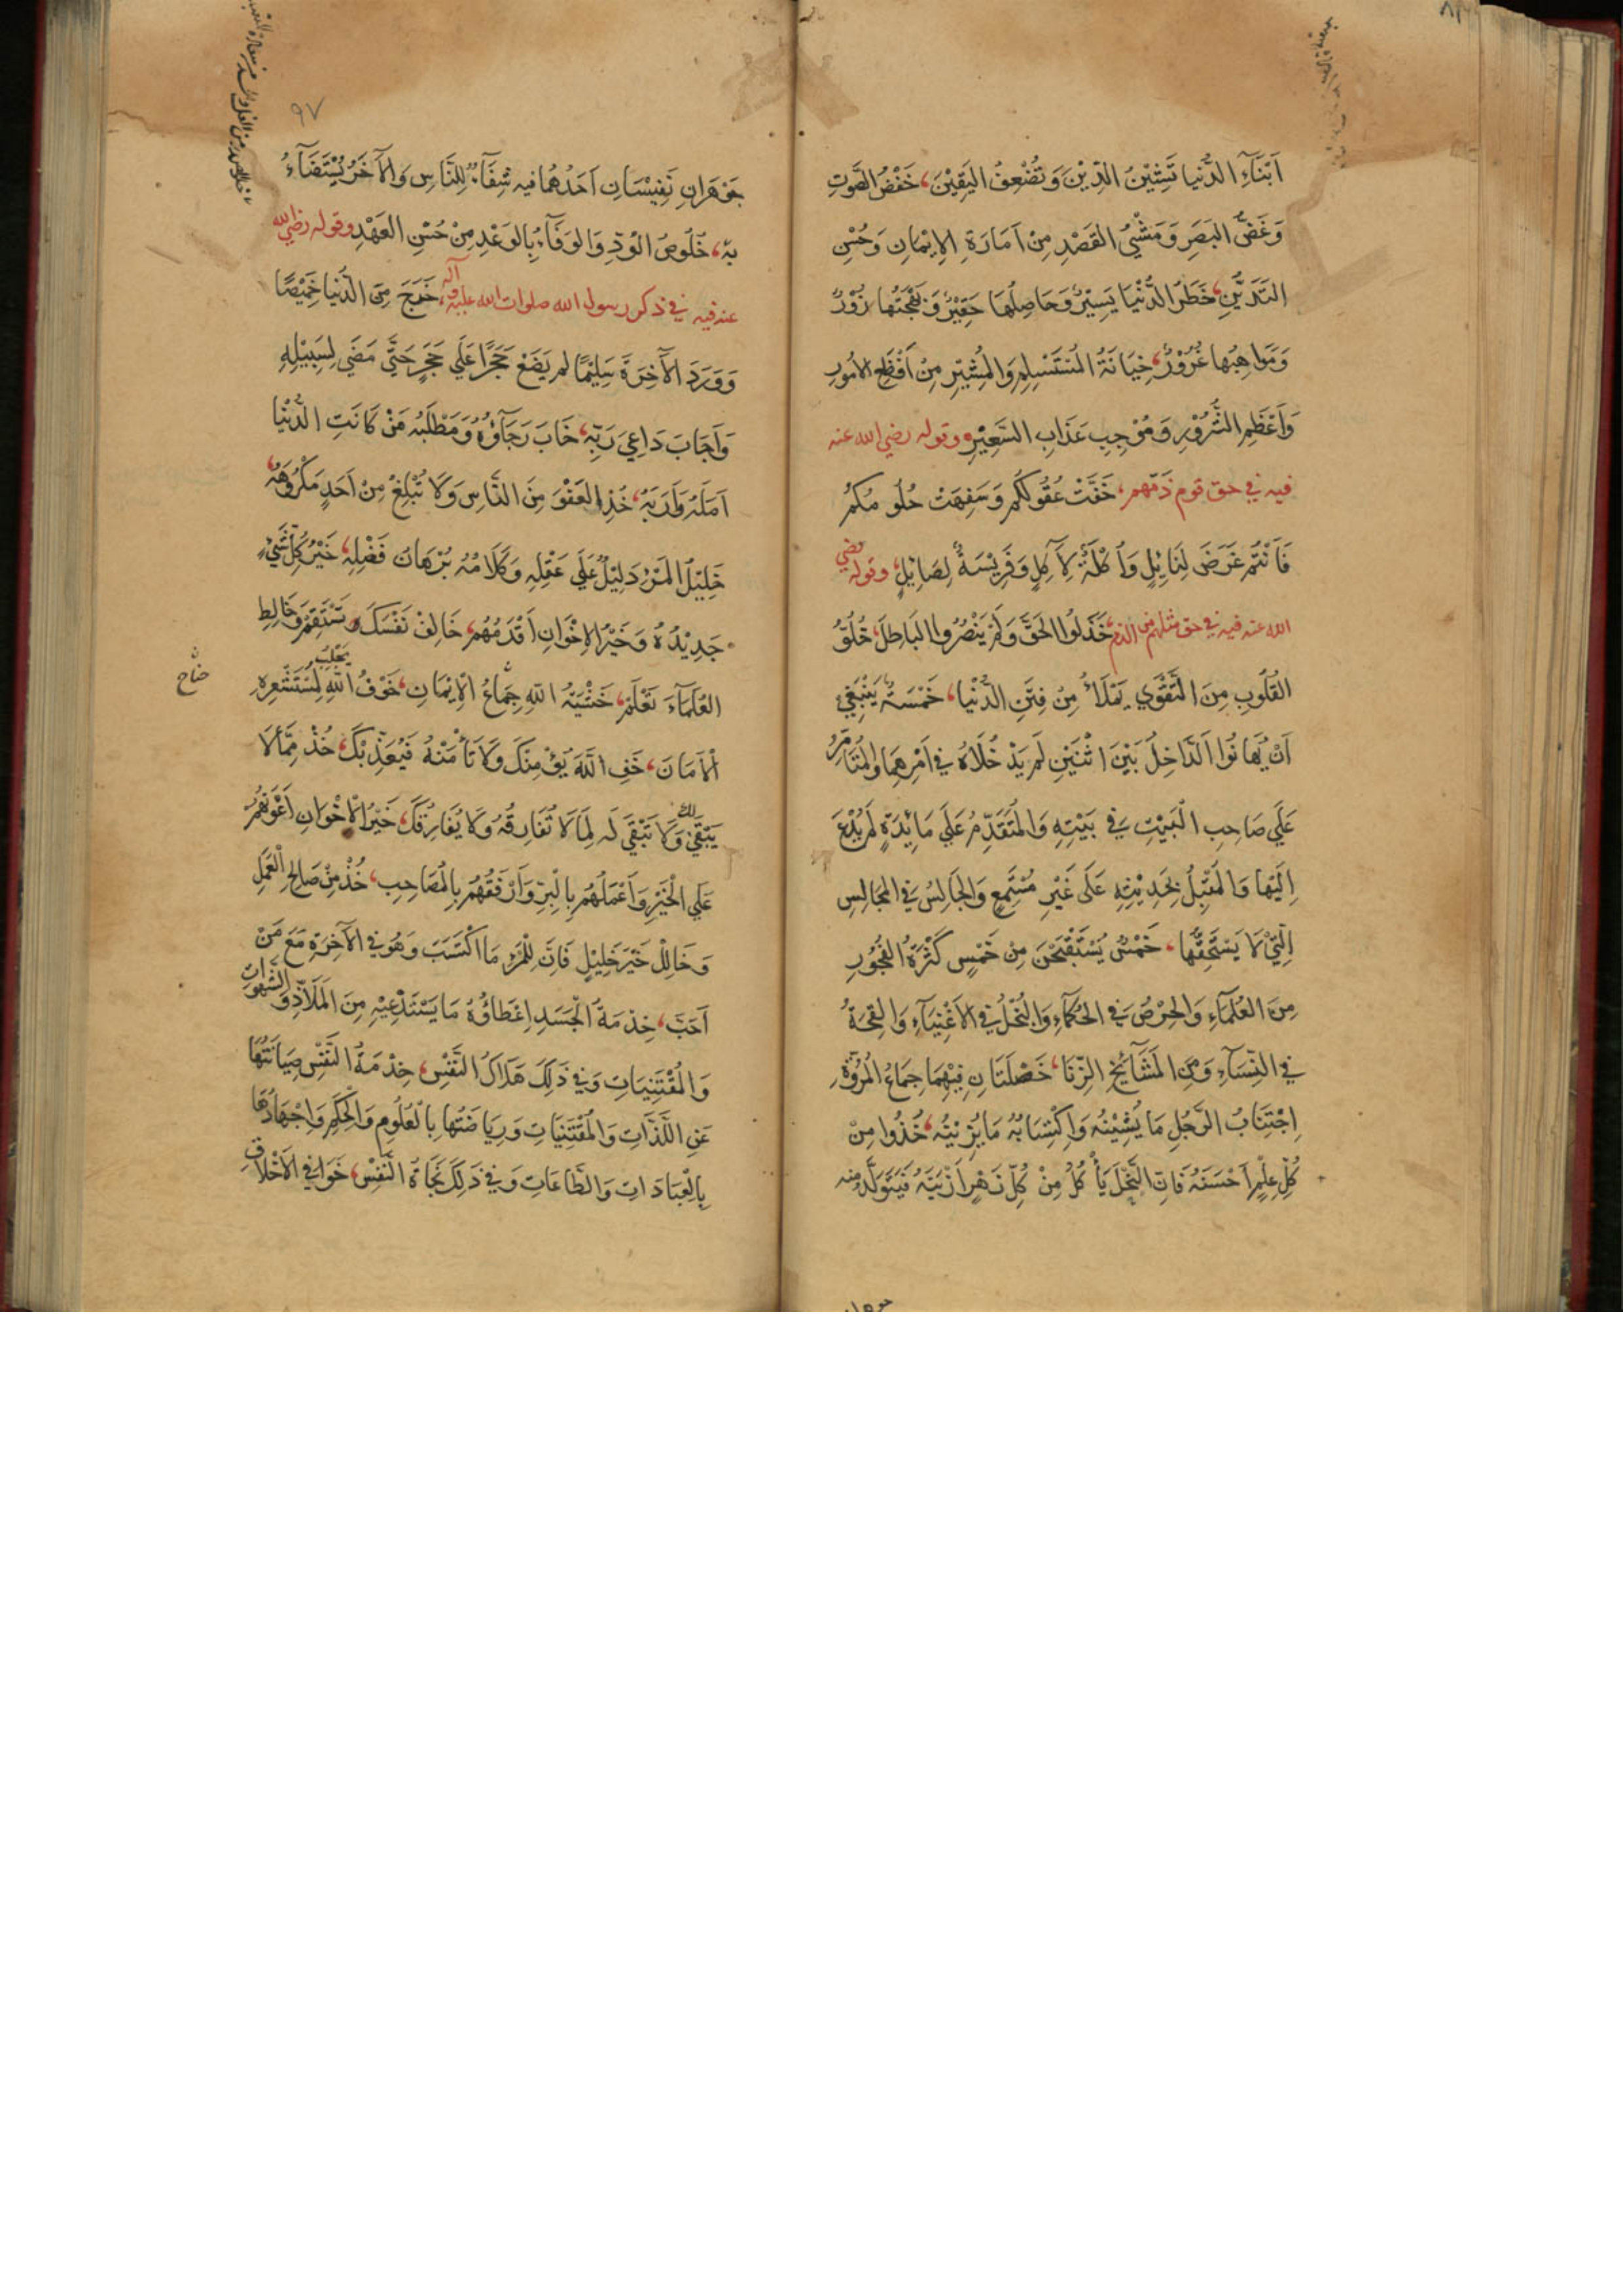 اَبْنَآءِ الدُّنيا تَشِيْنُ الدِّيْنَ وَتُضْعِفُ اليَقِيْنَ، خَفْضُ الصَّوتِ
وَغَضُّ البَصَرِ وَمَشْيُ القَصْدِ مِنْ اَمَارَةِ الاِيْمَانِ وَحُسْنِ
التَدَيُّنِ، خَطَرُ الدُّنْيَا يَسِيْرٌ وَحَاصِلُهَا حَقِيْرٌ وَبَهْجَتُها زُوْرٌ
وَمَواهِبُها غُرُوْرٌ، خِيَانَةُ المُسْتَسْلِمِ وَالمُسْتَشِيْرِ مِنْ اَفْظَعِ الامُورِ
وَاَعْظَمِ الشُّرُوْرِ وَمُوْجِبِ عَذَابِ السَّعِيْرِ، وقوله رضي الله عنه
فيه في حق قوم ذمّهم، خَفَّتْ عُقُوْلُكُم وَسَفِهَتْ حُلُومُكُمْ
فَاَنْتُم غَرَضٌ لِنَابِلٍ وَاُكْلَةٌ لِاٰكِلٍ وَفَرِيْسَةٌ لِصَائِلٍ، وقوله رضي
الله عنه فيه في حق مثلهم من الذم، خَذَلُوا الحَقَّ وَلَمْ يَنْصُرُوا البَاطِلَ، خُلُوُّ
القُلُوبِ مِنَ التَّقْوٰي يَمْلَأُ مِنْ فِتَنِ الدُّنْيا، خَمْسَةٌ يَنْبَغِي
اَنْ يُهَانُوا اَلدَّاخِلُ بَيْنَ اثْنَيْنِ لَم يُدْخِلَاهُ فِي اَمْرِهِمَا وَالمُتَأَمِّرُ
عَلَي صَاحِبِ الْبَيْتِ فِي بَيْتِهِ وَالمُتَقَدِّمُ عَلَي مَائِدَةٍ لَم يُدْعَ
اِلَيْها وَالمُقْبِلُ بِحَدِيْثِهِ عَلَى غَيْرِ مُسْتَمِعٍ وَالجَالِسُ فِي المَجَالِسِ
الَّتِيْ لَا يَسْتَحِقُّها، خَمْسٌ يُسْتَقْبَحْنَ مِنْ خَمْسٍ كَثْرَةُ الفُجُورِ
مِنَ العُلَمَآءِ وَالحِرْصُ فِي الحُكَمَاءِ وَالبُخْلُ فِي الاَغْنِيَآءِ وَالقِحَةُ
فِي النِّسَآءِ وَمِنَ المَشَآئِخِ الزِّنَا، خَصْلَتَانِ فِيْهِمَا جِمَاعُ المُرُوَّةِ
اِجْتِنَابُ الرَّجُلِ مَا يُشِيْنُهُ وَاكْتِسَابُهُ مَا يُزِيْنُهُ، خُذُوا مِنْ
كُلِّ عِلْمٍ اَحْسَنَهُ فَاِنَّ النَّحْلَ يَأْكُلُ مِنْ كُلِّ زَهْرٍ اَزْيَنَهُ فَيَتَوَلَّدُ منه
٩٧
جَوْهَرَانِ نَفِيْسَانِ اَحَدُهُما فيه شِفَآءٌ لِلنَّاسِ وَالآخَرُ يُسْتَضَآءُ
بِهِ، خُلُوصُ الوُدِّ وَالوَفَآءُ بِالوَعْدِ مِنْ حُسْنِ العَهْدِ وقوله رضي الله
عنه فيه في ذكر رسول الله صلوات الله عليه وآله، خَرَجَ مِنَ الدُّنيا خَمِيْصًا
وَوَرَدَ الآخِرَةَ سَلِيْمًا لم يَضَعْ حَجَرًا عَلَي حَجَرٍ حَتَّي مَضَي لِسَبِيْلِهِ
وَاَجَابَ دَاعِيَ رَبِّهِ، خَابَ رَجَآؤُهُ وَمَطْلَبُهُ مَنْ كَانَتِ الدُّنْيا
اَمَلَهُ وَاَرَبَهُ، خُذِ العَفْوَ مِنَ النَّاسِ وَلَا تُبْلِغْ مِنْ اَحَدٍ مَكْرُوْهَهُ،
خَلِيْلُ المَرْءِ دَلِيْلٌ عَلَي عَقْلِهِ وَكَلَامُهُ بُرْهَانُ فَضْلِهِ، خَيْرُ كُلِّ شَيْءٍ
جَدِيْدُهُ وَخَيْرُ الاِخْوَانِ اَقْدَمُهُم، خَالِفْ نَفْسَكَ تَسْتَقِمْ وَخَالِطِ
العُلَمَآءَ تَعْلَمْ، خَشْيَةُ اللهِ جِمَاعُ الْاِيْمَانِ، خَوْفُ اللهِ يَجْلِبُ لِمُسْتَشْعِرِهِ
الْاَمَانَ، خَفِ اللهَ يُؤْمِنْكَ وَلَا تَأْمَنْهُ فَيُعَذِّبْكَ، خُذْ مِمَّا لَا
يَبْقَي لك وَلَا تَبْقَي لَه لِمَا لَا تُفَارِقُهُ وَلَا يُفَارِقُكَ، خَيْرُ الْاِخْوَانِ اَعْوَنُهُمْ
عَلَي الْخَيْرِ وَاَعْمَلُهُمْ بِالْبِرِّ وَاَرْفَقُهُمْ بِالْمُصَاحِبِ، خُذْ مِنْ صَالِحِ الْعَمَلِ
وَخَالِلْ خَيْرَ خَلِيْلٍ فَاِنَّ لِلْمَرْءِ مَا اكْتَسَبَ وَهُوَ فِي الآخِرَةِ مَعَ مَنْ
اَحَبَّ، خِدْمَةُ الْجَسَدِ اِعْطَاؤُهُ مَا يَسْتَدْعِيْهِ مِنَ المَلَاذِّ وَالشَّهَوَاتِ
وَالمُقْتَنِيَاتِ وَفِي ذَلِكَ هَلَاكُ النَّفْسِ، خِدْمَةُ النَّفْسِ صِيَانَتُهَا
عَنِ اللَّذَّاتِ وَالمُقْتَنِيَاتِ وَرِيَاضَتُهَا بِالْعُلُومِ وَالْحِكَمِ وَاِجْهَادُهَا
بِالْعِبَادَاتِ وَالطَّاعَاتِ وَفِي ذَلِكَ نَجَاةُ النَّفْسِ، خَوَافِي الْاَخْلَاقِ